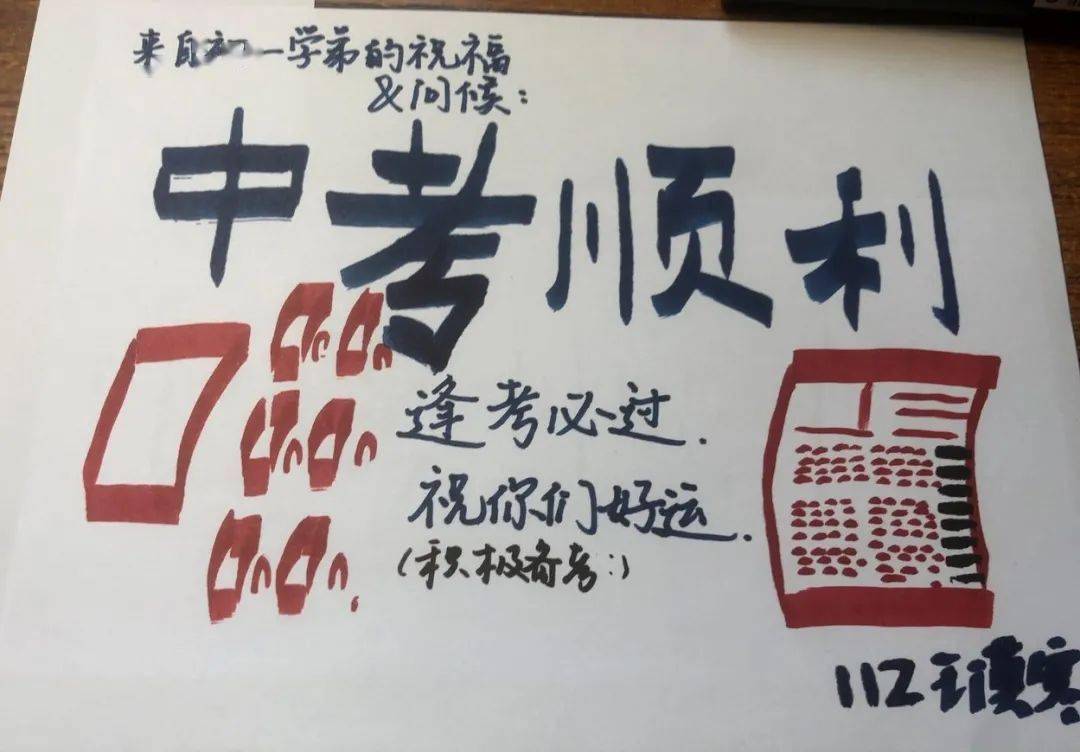 来自初一学弟的祝福
&问候：
中考顺利
逢考必过.
祝你们好运.
(积极备考:)
112